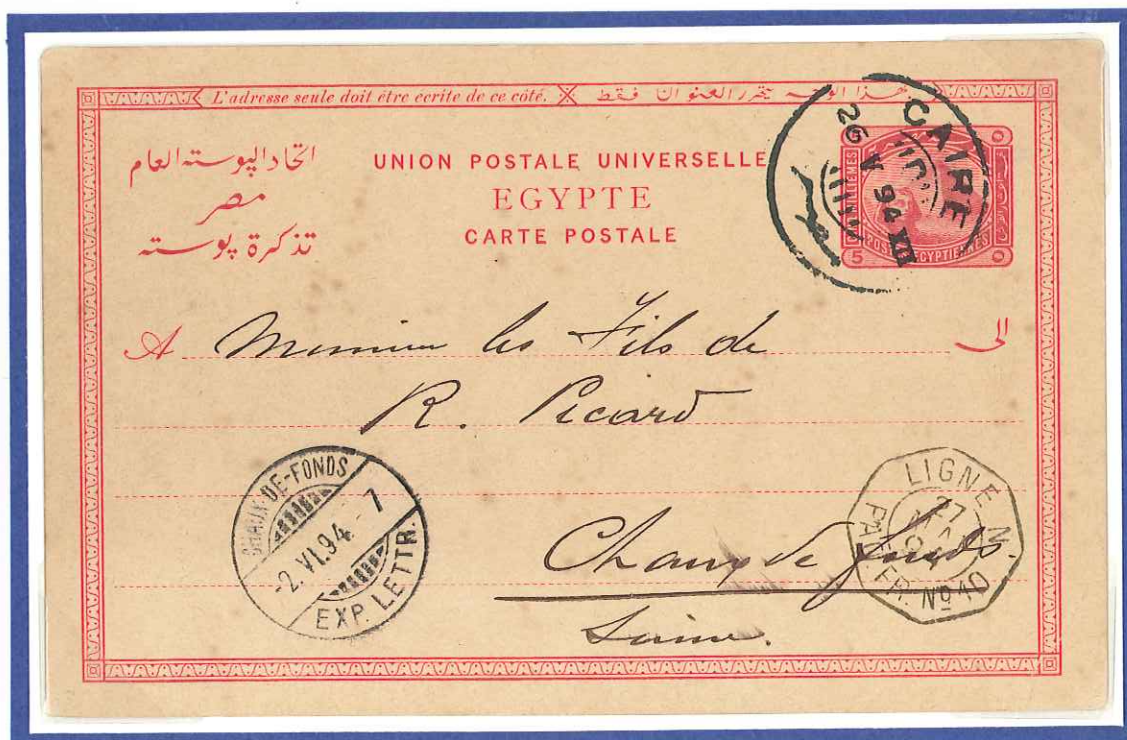 L'adresse seule doit être écrite de ce côté. هذا الوجه يحرر العنوان فقط
اتحاد البوسته العام
مصر
تذكرة بوسته
UNION POSTALE UNIVERSELLE
EGYPTE
CARTE POSTALE
CAIRE
26 V 94 XII
5 MILLIEMES
POSTES EGYPTIENNES
5
A les Fils de الى
R. Picard
Chaux de fonds.
Suisse.
CHAUX-DE-FONDS
-2.VI.94.-7
EXP. LETTR.
LIGNE N
27
MAI
PAQ. FR. Nº 10